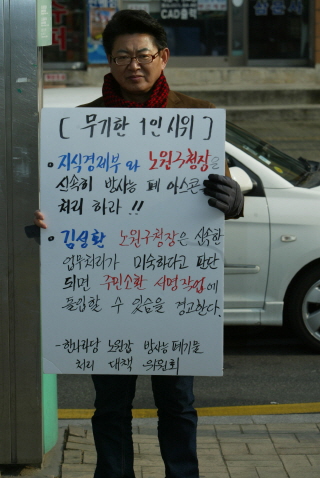 CAD출력
[ 무기한 1인 시위 ]
• 지식경제부 와 노원구청장은
신속히 방사능 폐 아스콘
처리 하라 !!
• 김성환 노원구청장은 신속한
업무처리가 미숙하다고 판단
되면 주민소환 서명작업에
돌입할 수 있음을 경고한다.
- 한나라당 노원갑 방사능폐기물
처리 대책 위원회